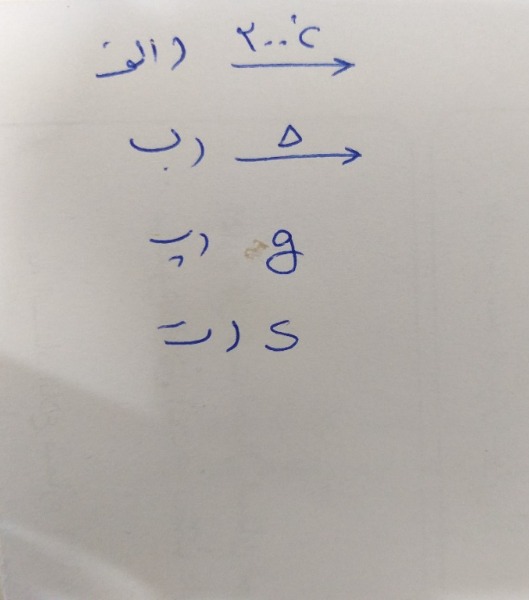 الف) ۲۰۰°C →
ب) Δ →
پ) g
ت) s